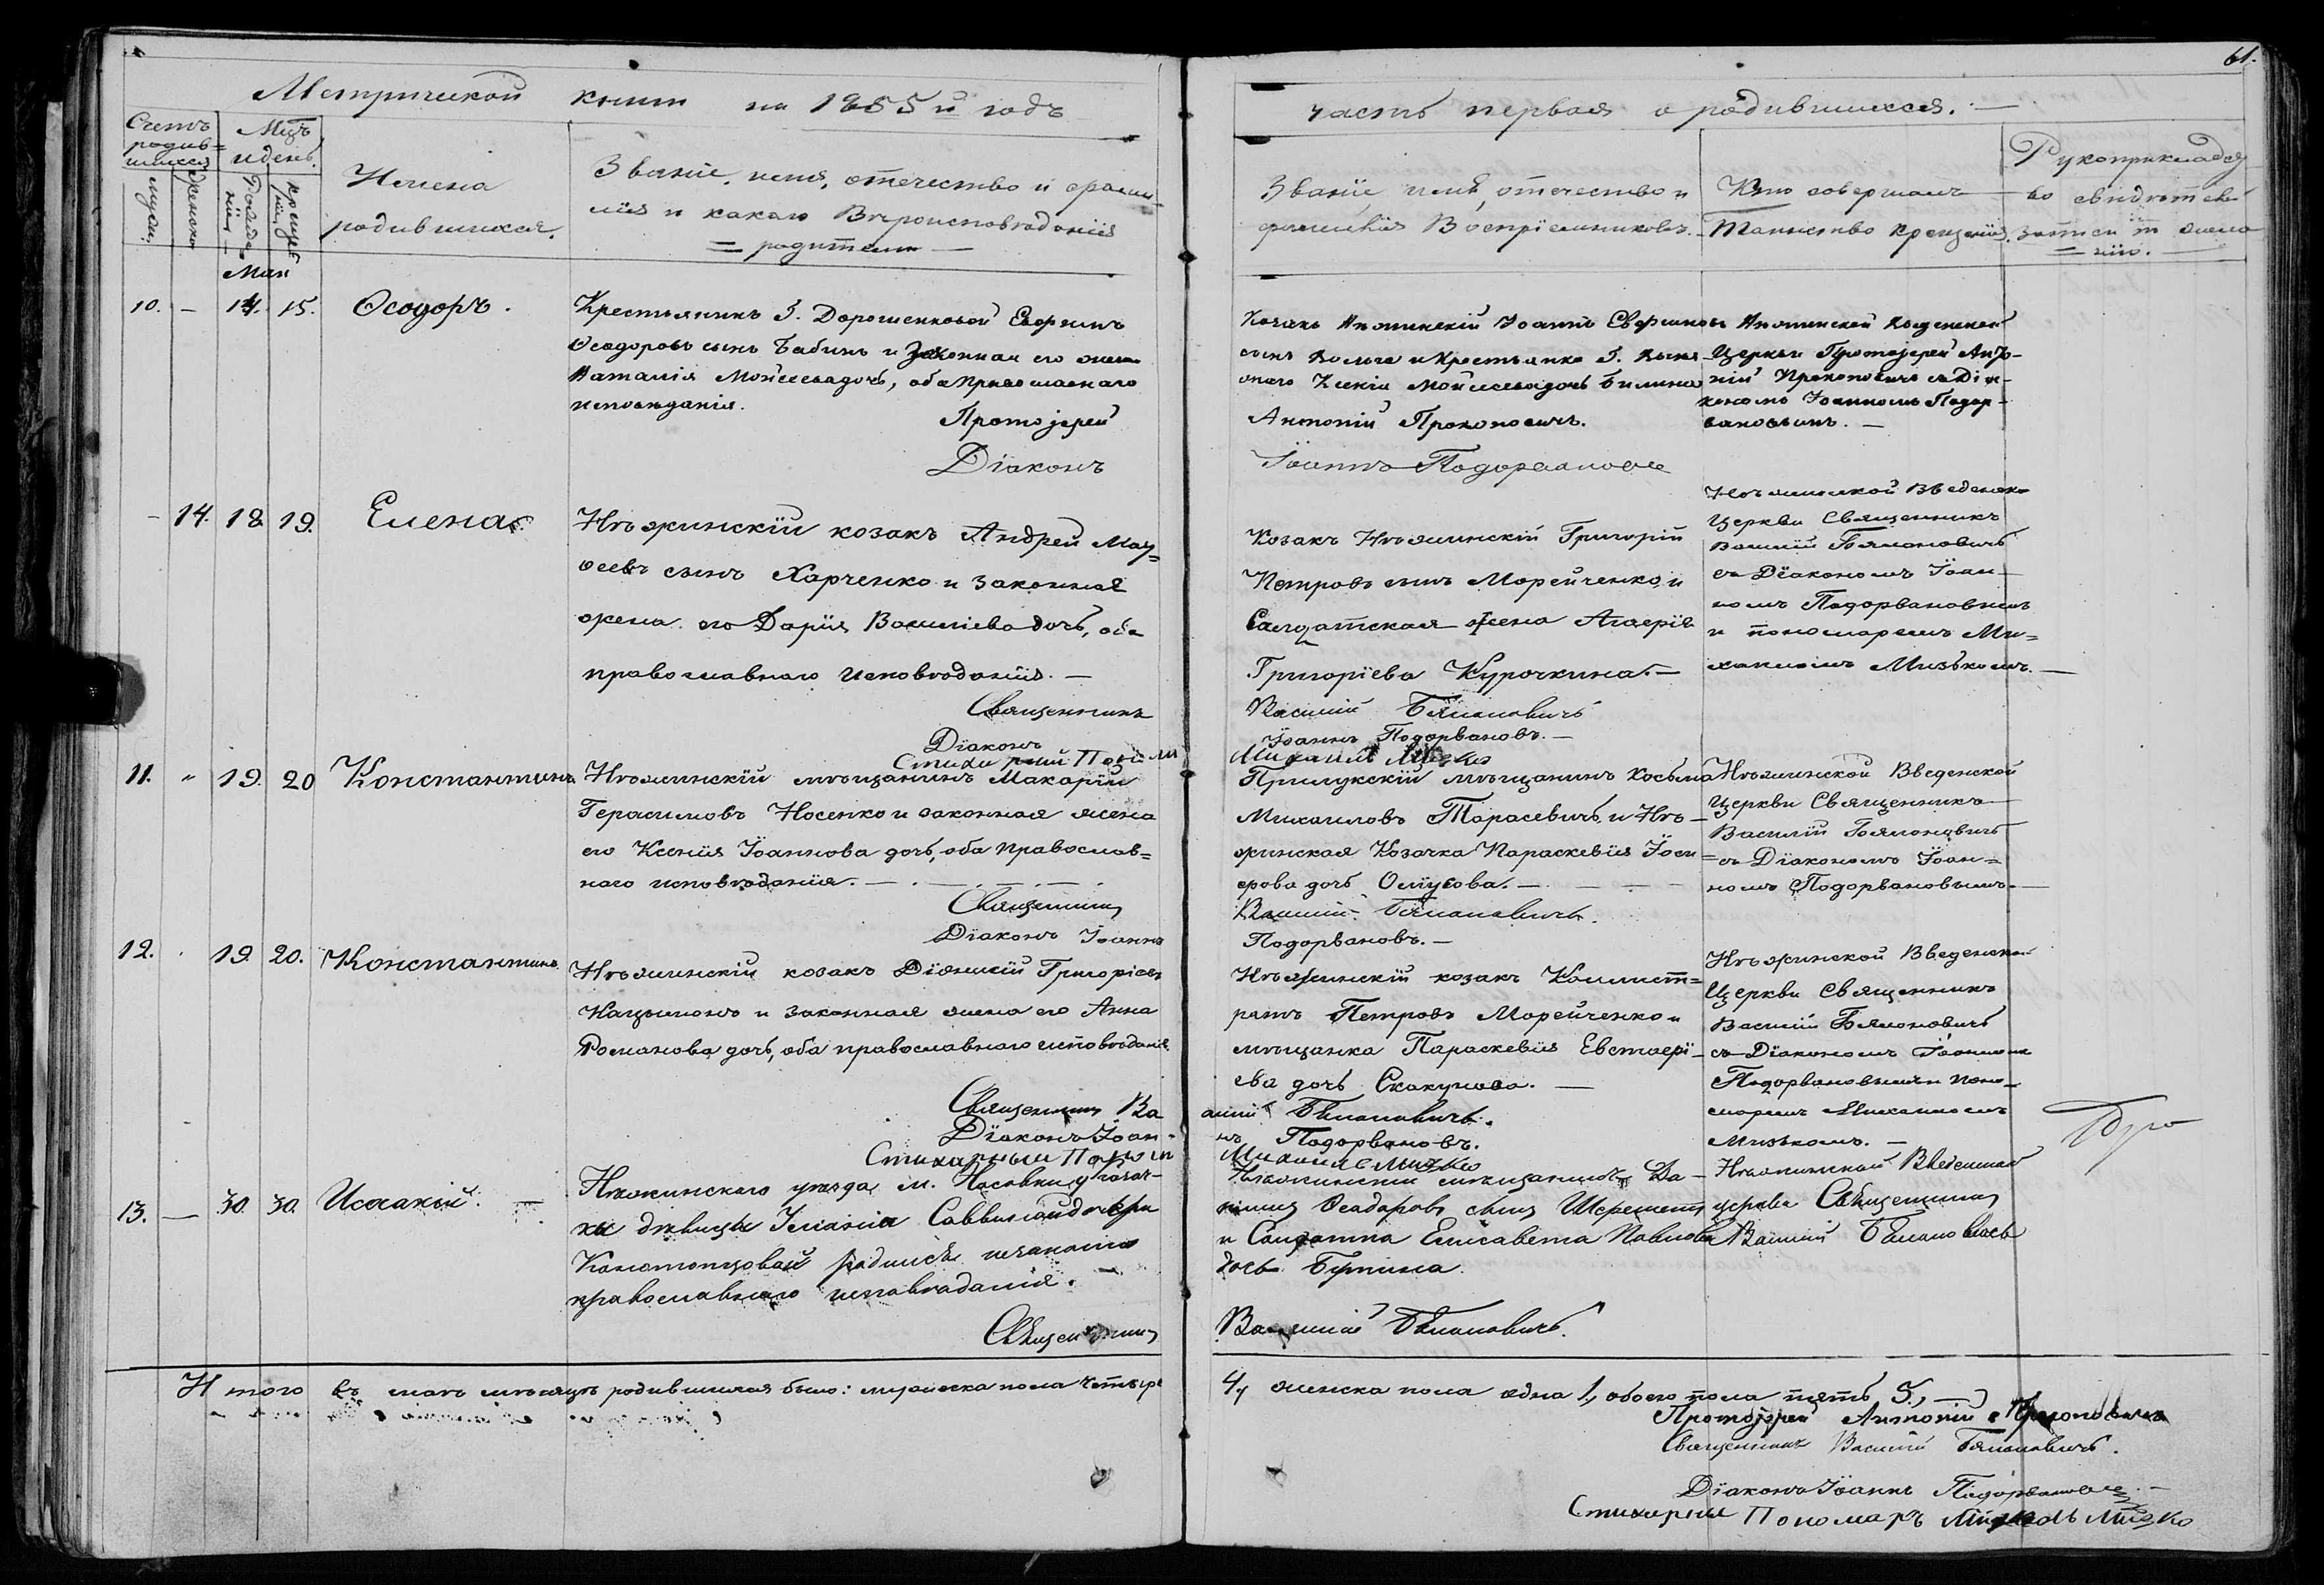 61.
Метрической книги на 1885й годъ
часть первая о родившихся. —
Счетъ родив=
шихся
Мѣсъ
и день.
Мужск.
Женска
Рожде-
нія
Креще-
нія
Имена
родившихся.
Званіе, имя, отечество и фами-
лія и какаго Вѣроисповѣданія
= родители —
Званіе, имя, отечество и
фамилія Воспріемниковъ.
Кто совершалъ
Таинство крещенія.
Рукоприкладст
во свидѣтелей
записи по жела
= нію. —
Маи
10. — 14. 15. Ѳеодоръ.
Крестьянинъ д. Дорошенковой Евфимъ
Ѳеодоровъ сынъ Бабичъ и законная его жена
Наталія Мойсеевадочь, оба православнаго
исповѣданія.
Протоіерей
Діаконъ
Козакъ Іоаннъ Евфимовъ
сынъ и крестьянка
Ксенія Мойсеевадочь
Антоній Прокоповичъ.
Іоаннъ Подорвановъ
Церкви Протоіерей Анто-
ній Прокоповичъ съ Діа-
кономъ Іоанномъ Подор-
вановымъ. —
- 14. 18 19. Елена.
Нѣжинскій козакъ Андрей Мат=
ѳеевъ сынъ Харченко и законная
жена его Дарія Василіева дочь, оба
православнаго исповѣданія. —
Священникъ
Діаконъ
Козакъ Нѣжинскій Григорій
Петровъ сынъ Морейченко и
Салдатская жена Агафія
Григоріева Курочкина. —
Василій Бѣлановичъ
Іоаннъ Подорвановъ. —
Михаилъ Мизко
Нѣжинской Введенско
Церкви Священникъ
Василій Бѣлановичъ
съ Діакономъ Іоан-
номъ Подорвановымъ
и пономаремъ Ми=
хаиломъ Мизькомъ. —
11. " 19. 20 Константинъ
Нѣжинскій мѣщанинъ Макарій
Герасимовъ Носенко и законная жена
его Ксенія Іоаннова дочь, оба православ=
наго исповѣданія. —
Священникъ
Діаконъ Іоаннъ
Прилукскій мѣщанинъ Косьма
Михаиловъ Тарасевичъ и Нѣ-
жинская Козачка Параскевія Іоси=
фова дочь —
Василій Бѣлановичъ.
Подорвановъ. —
Нѣжинской Введенской
Церкви Священникъ
Василій Бѣлановичъ
съ Діакономъ Іоан=
номъ Подорвановымъ. —
12. . 19. 20. Константинъ
Нѣжинскій козакъ Діонисій Григоріевъ
и законная жена его Анна
Романова дочь, оба православнаго исповѣданія.
Священникъ Ва
Діаконъ Іоан-
Стихарный Поном
Нѣжинскій козакъ Калист=
ратъ Петровъ Морейченко и
мѣщанка Параскевія Евстафі-
ева дочь Скакунова. —
силій Бѣлановичъ.
нъ Подорвановъ.
Михаилъ Мизко
Нѣжинской Введенской
Церкви Священникъ
Василій Бѣлановичъ
съ Діакономъ Іоанномъ
Подорвановымъ и поно-
маремъ Михаиломъ
Мизькомъ. —
13. — 30. 30. Исаакій.
Нѣжинскаго уѣзда м. Носовки у козач-
ки дѣвицы Саввиной дочери
родился незаконно
православнаго исповѣданія. —
Священникъ
Нѣжинскій мѣщанинъ Да-
ніилъ Ѳеодоровъ сынъ Шереметъ
и Солдатка Елисавета Павлова
дочь
Василій Бѣлановичъ.
Нѣжинской Введенской
церкви Священникъ
Василій Бѣлановичъ
Итого въ маѣ мѣсяцѣ родившихся было: мужеска пола четыре
4, женска пола одна 1, обоего пола пять 5, —
Протоіерей Антоній Прокоповичъ
Священникъ Василій Бѣлановичъ.
Діаконъ Іоаннъ Подорвановъ. —
Стихарный Пономарь Михаилъ Мизко